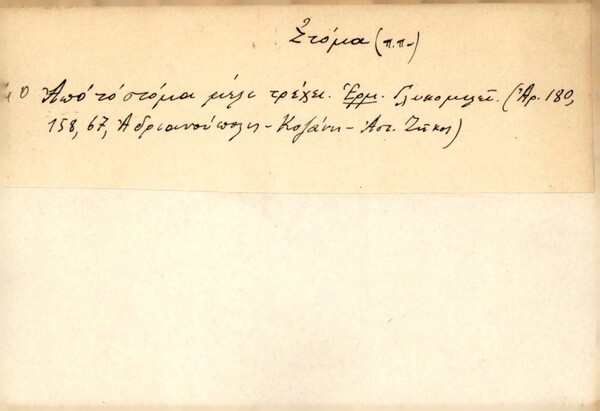 Στόμα (π.π.)
Ἀπό τό στόμα μέλι τρέχει. Ἑρμ. Γλυκομιλεῖ. (Ἀρ. 180,
158, 67, Ἀδριανούπολις - Κοζάνη - Ἀστ. Ζήκος)